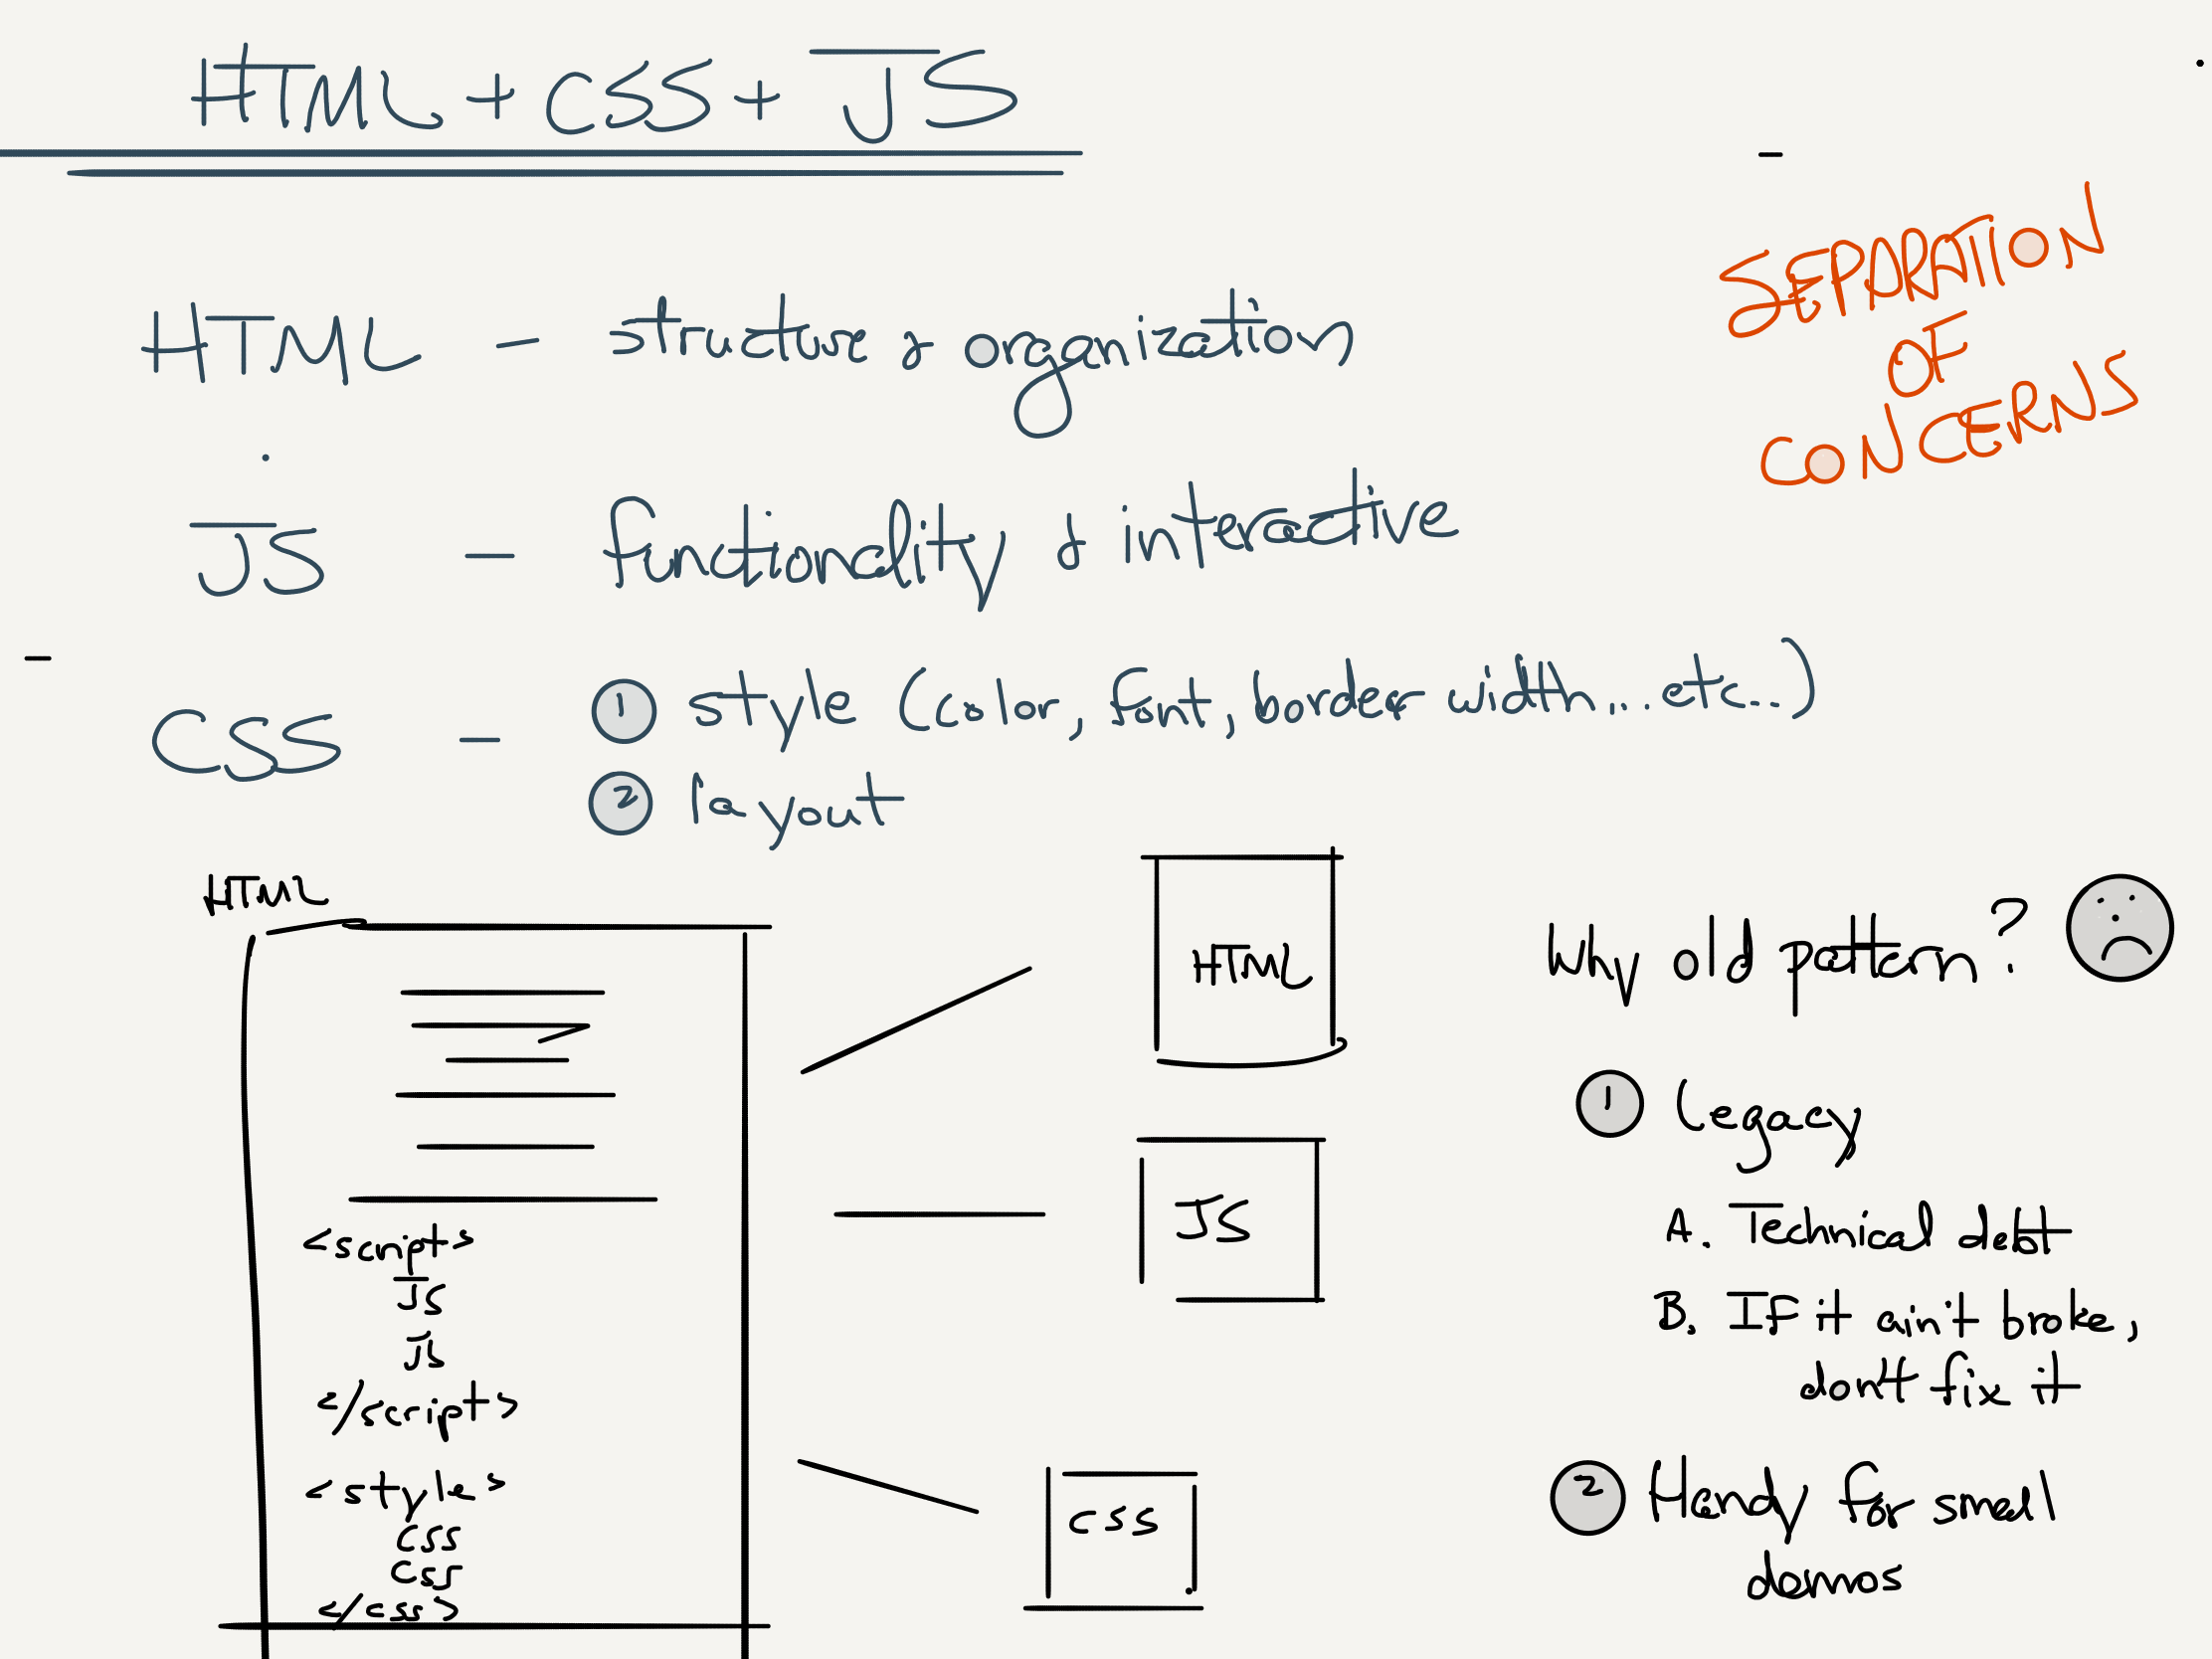 HTML + CSS + JS
SEPARATION
OF
CONCERNS
HTML — structure & organization
JS — functionality & interactive
CSS — ① style (color, font, border width... etc...)
② layout
HTML
<script>
JS
JS
</script>
<style>
CSS
CSS
</css>
HTML
JS
CSS
Why old pattern?
① Legacy
A. Technical debt
B. IF it ain't broke,
don't fix it
② Handy for small
demos